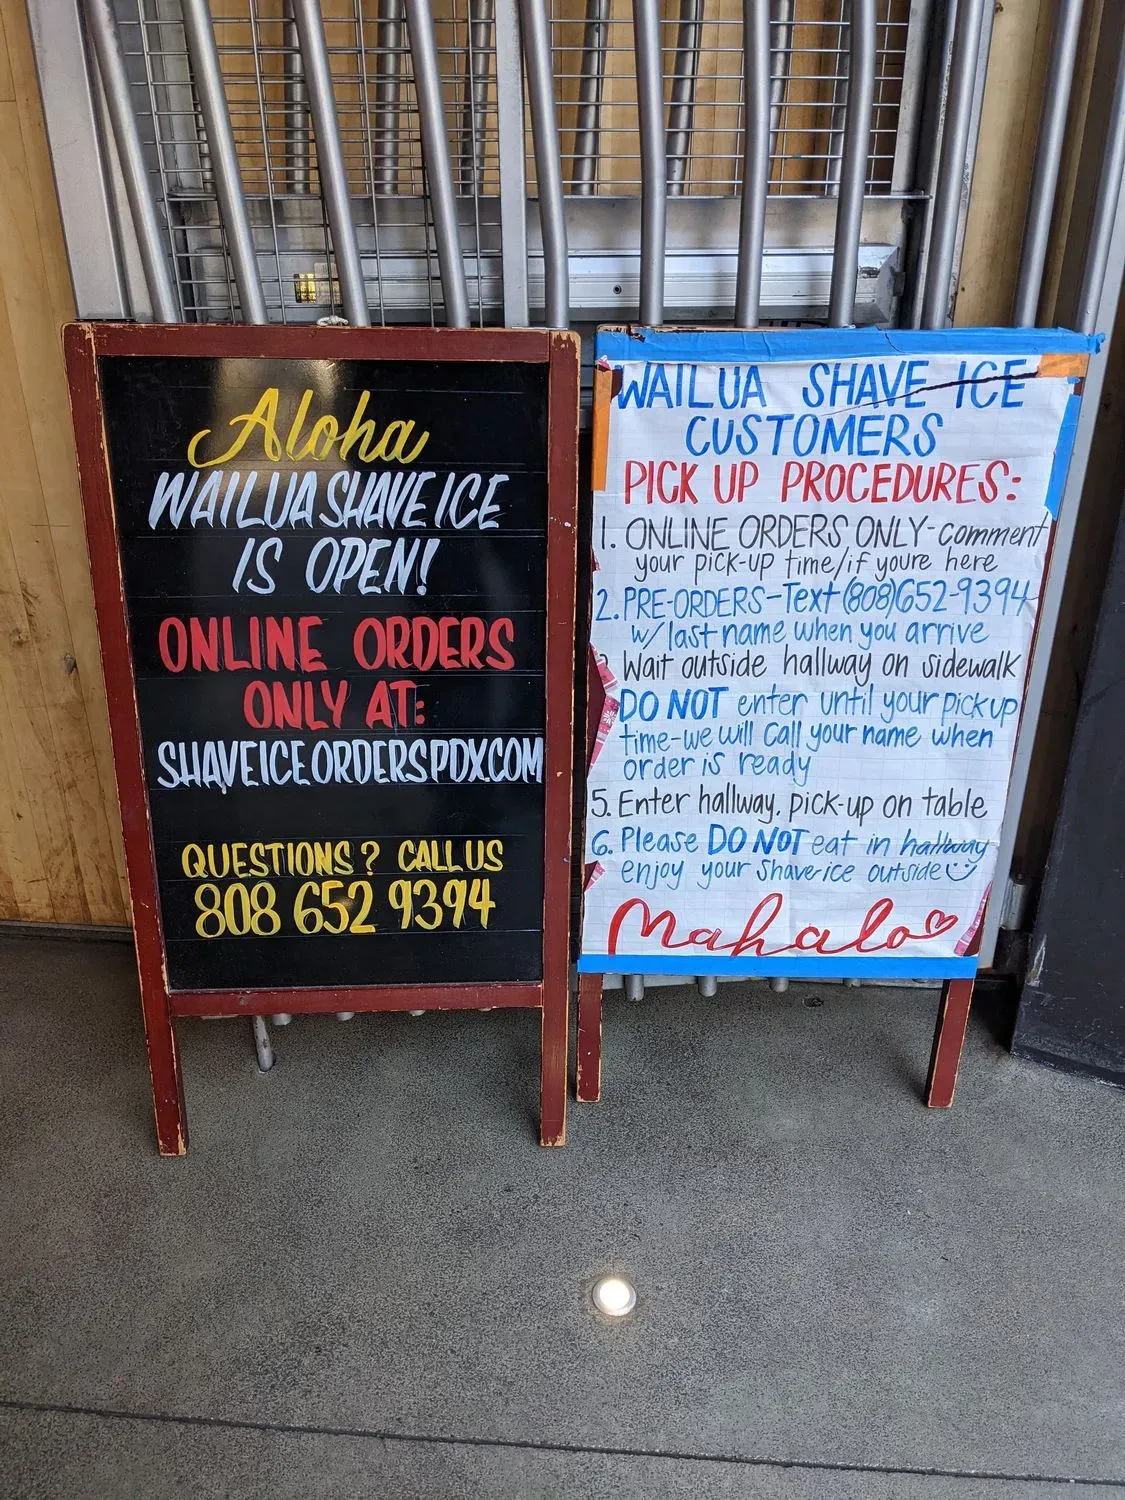 Aloha
WAILUA SHAVE ICE
IS OPEN!
ONLINE ORDERS
ONLY AT:
SHAVEICEORDERSPDX.COM
QUESTIONS? CALL US
808 652 9394
WAILUA SHAVE ICE
CUSTOMERS
PICK UP PROCEDURES:
1. ONLINE ORDERS ONLY - comment
your pick-up time/if youre here
2. PRE-ORDERS - Text (808)652-9394
w/ last name when you arrive
Wait outside hallway on sidewalk
DO NOT enter until your pick up
time - we will call your name when
order is ready
5. Enter hallway. pick-up on table
6. Please DO NOT eat in hallway
enjoy your Shave-ice outside
Mahalo